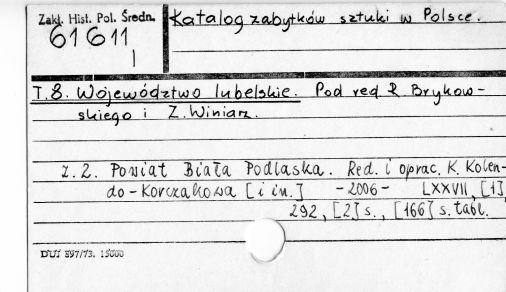 Zakł. Hist. Pol. Średn.
Katalog zabytków sztuki w Polsce.
61611
T.8. Województwo lubelskie. Pod red. R. Brykow-
skiego i Z. Winiarz.
z.2. Powiat Biała Podlaska. Red. i oprac. K. Kolen-
do-Korczakowa [i in.] -2006- LXXVII, [1],
292, [2] s., [166] s. tabl.
DUJ 897/73. 15000